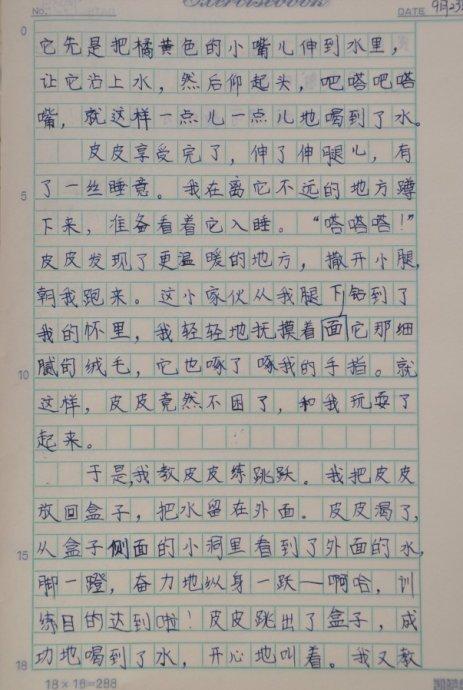 Exercisebook
NO.
DATE 9月23
0
它先是把橘黄色的小嘴儿伸到水里，
让它沾上水，然后仰起头，吧嗒吧嗒
嘴，就这样一点儿一点儿地喝到了水。
皮皮享受完了，伸了伸腿儿，有
5 了一丝睡意。我在离它不远的地方蹲
下来，准备看着它入睡。“嗒嗒嗒！”
皮皮发现了更温暖的地方，撒开小腿，
朝我跑来。这小家伙从我腿下钻到了
我的怀里，我轻轻地抚摸着面它那细
10 腻的绒毛，它也啄了啄我的手指。就
这样，皮皮竟然不困了，和我玩耍了
起来。
于是，我教皮皮练跳跃。我把皮皮
放回盒子，把水留在外面。皮皮渴了，
15 从盒子侧面的小洞里看到了外面的水，
脚一蹬，奋力地纵身一跃——啊哈，训
练目的达到啦！皮皮跳出了盒子，成
18 功地喝到了水，开心地叫着。我又教
18×16=288